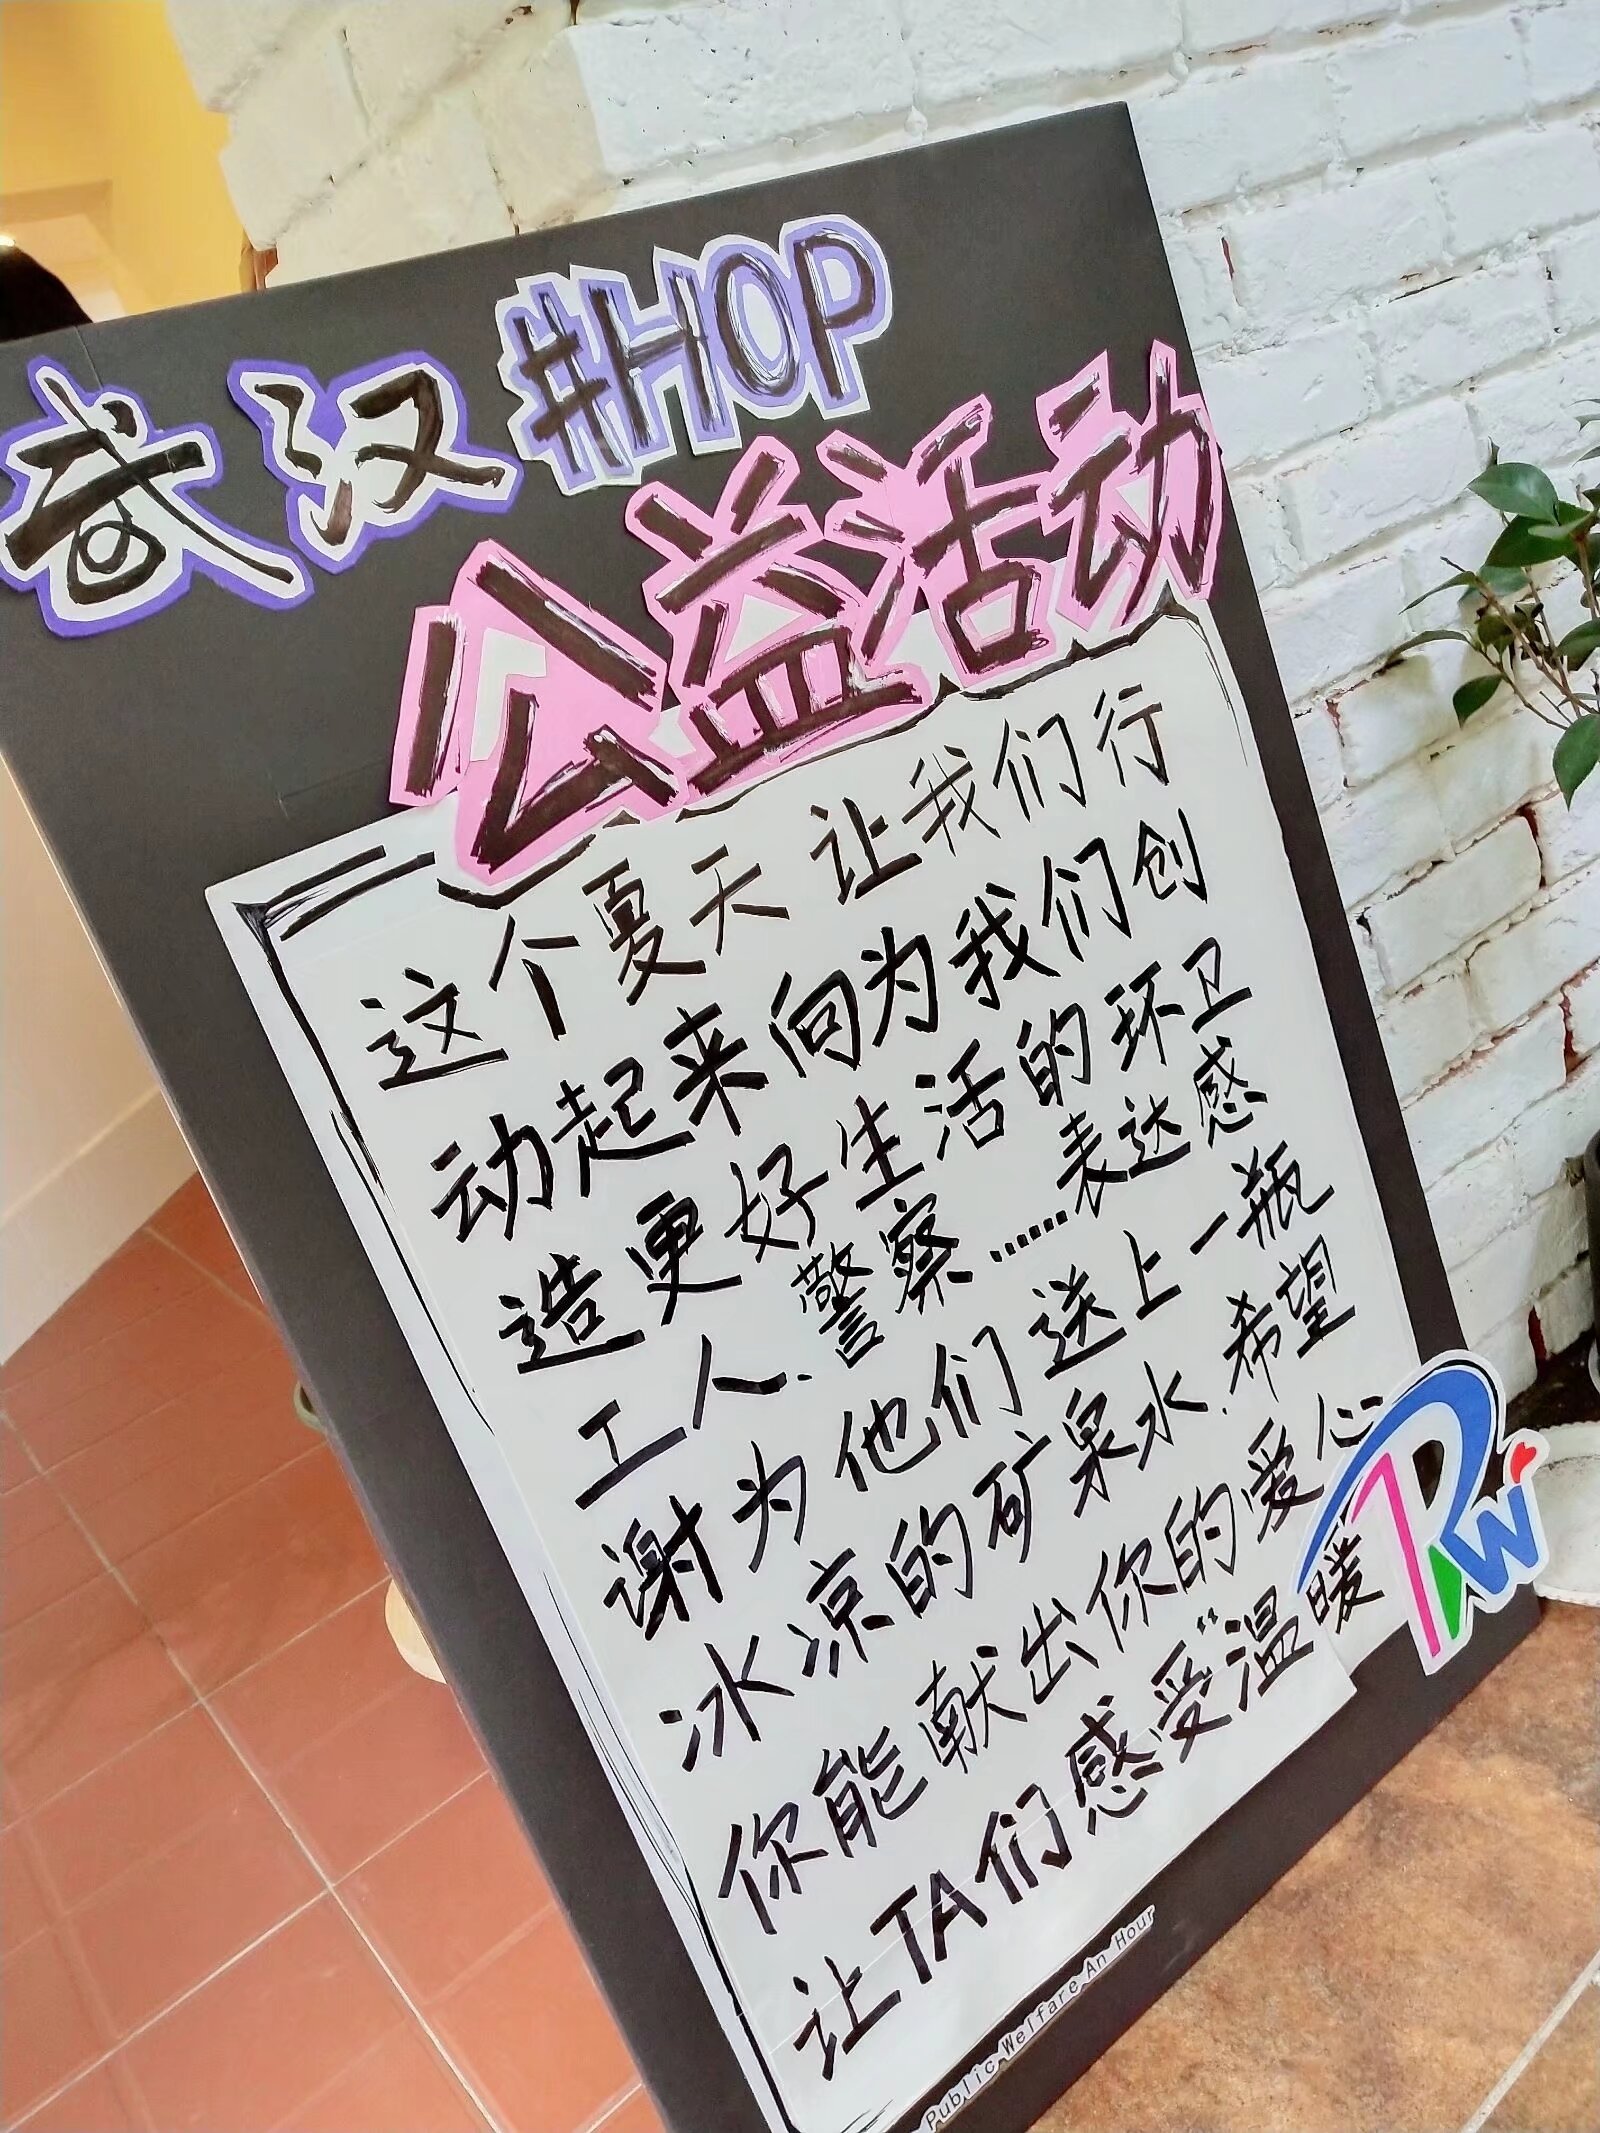 武汉#HOP
公益活动
这个夏天 让我们行
动起来向为我们创
造更好生活的环卫
工人、警察……表达感
谢为他们送上一瓶
冰凉的矿泉水.希望
你能献出你的爱心
让TA们感受“温暖
PWi
Public Welfare An Hour